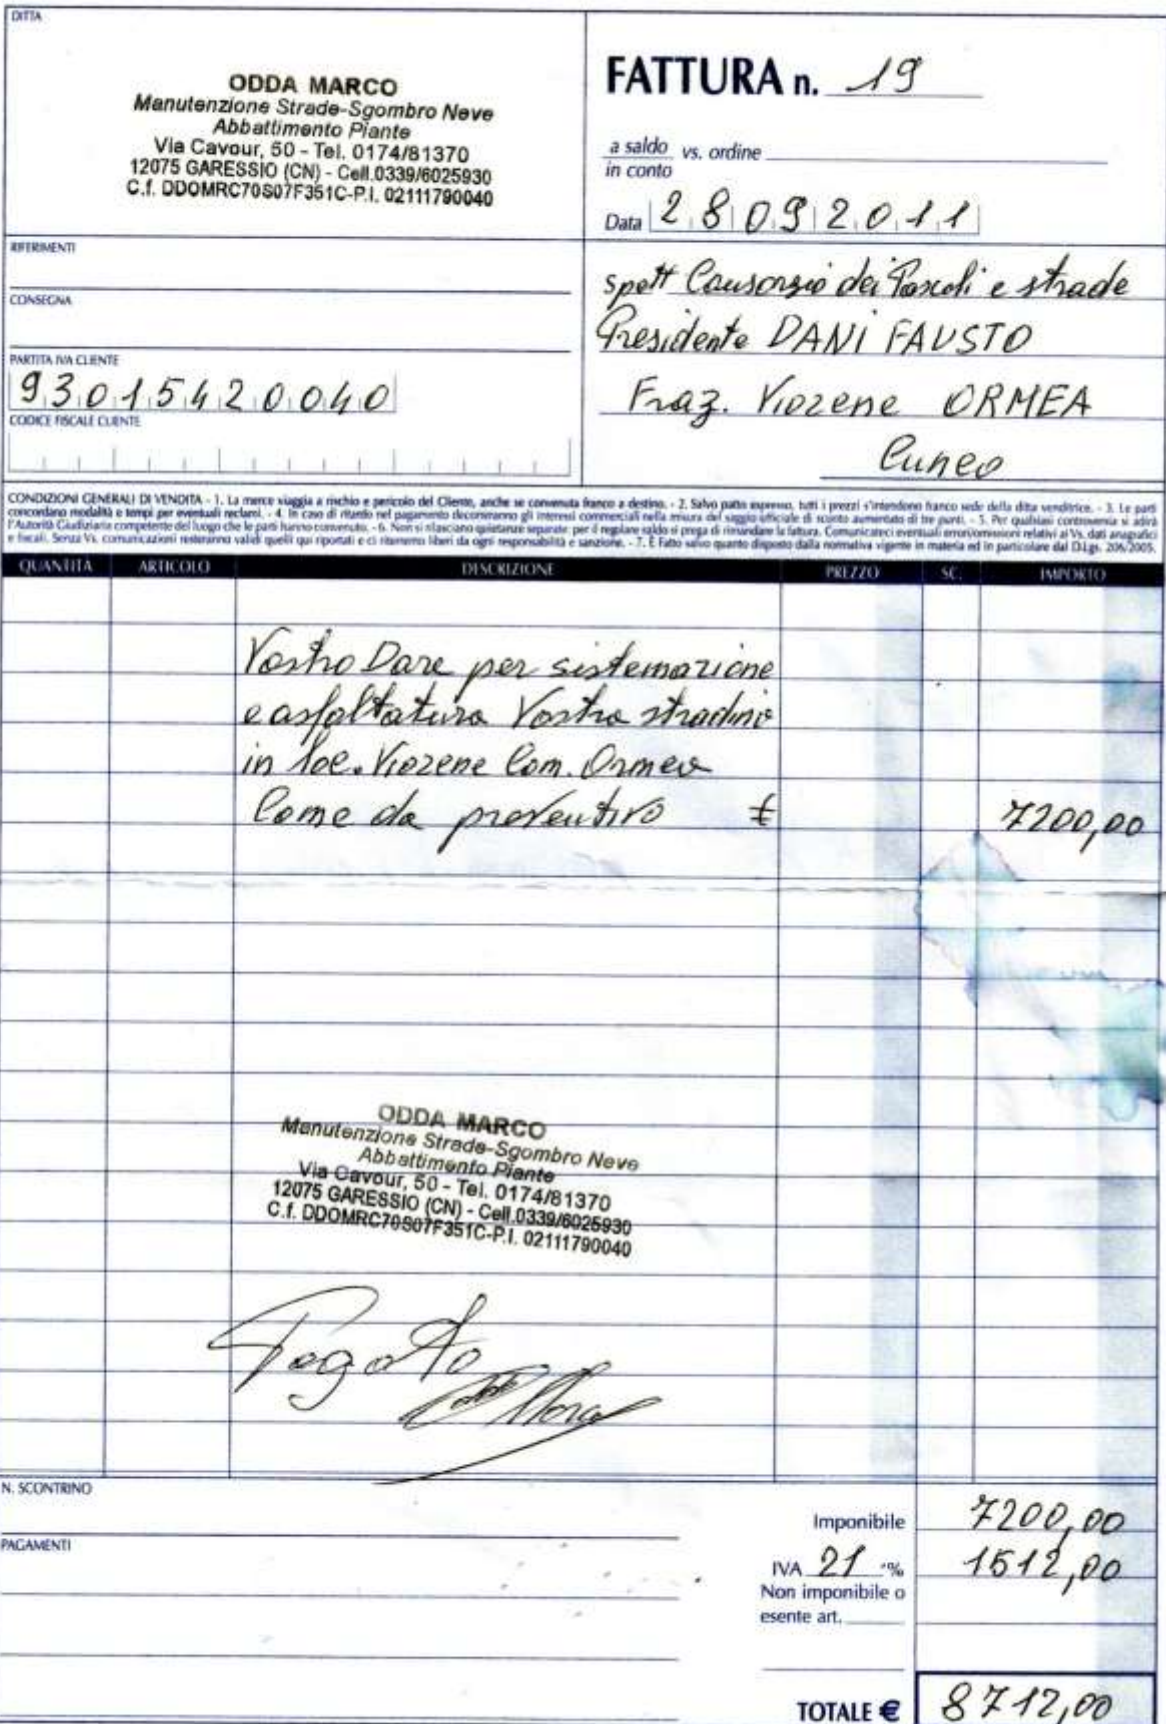 DITTA
ODDA MARCO
Manutenzione Strade-Sgombro Neve
Abbattimento Piante
Via Cavour, 50 - Tel. 0174/81370
12075 GARESSIO (CN) - Cell.0339/6025930
C.f. DDOMRC70S07F351C-P.I. 02111790040
FATTURA n. 19
a saldo vs. ordine
in conto
Data 28092011
RIFERIMENTI
CONSEGNA
PARTITA IVA CLIENTE
93015420040
CODICE FISCALE CLIENTE
spett Consorzio dei Pascoli e strade
Presidente DANI FAUSTO
Fraz. Viozene ORMEA
Cuneo
CONDIZIONI GENERALI DI VENDITA - 1. La merce viaggia a rischio e pericolo del Cliente, anche se convenuta franco a destino. - 2. Salvo patto espresso, tutti i prezzi s'intendono franco sede della ditta venditrice. - 3. Le parti
concordano modalità e tempi per eventuali reclami. - 4. In caso di ritardo nel pagamento decorreranno gli interessi commerciali nella misura del saggio ufficiale di sconto aumentato di tre punti. - 5. Per qualsiasi controversia si adirà
l'Autorità Giudiziaria competente del luogo che le parti hanno convenuto. - 6. Non si rilasciano quietanze separate: per il regolare saldo si prega di rimandare la fattura. Comunicateci eventuali errori/omissioni relativi ai Vs. dati anagrafici
e fiscali. Senza Vs. comunicazioni resteranno validi quelli qui riportati e ci riterremo liberi da ogni responsabilità e sanzione. - 7. È fatto salvo quanto disposto dalla normativa vigente in materia ed in particolare dal D.Lgs. 206/2005.
QUANTITÀ ARTICOLO DESCRIZIONE PREZZO SC. IMPORTO
Vostro Dare per sistemazione
e asfaltatura Vostra stradina
in loc. Viozene Com. Ormea
Come da preventivo € 7200,00
ODDA MARCO
Manutenzione Strade-Sgombro Neve
Abbattimento Piante
Via Cavour, 50 - Tel. 0174/81370
12075 GARESSIO (CN) - Cell.0339/6025930
C.f. DDOMRC70S07F351C-P.I. 02111790040
Pagato
N. SCONTRINO
PAGAMENTI
Imponibile 7200,00
IVA 21 % 1512,00
Non imponibile o
esente art.
TOTALE € 8712,00